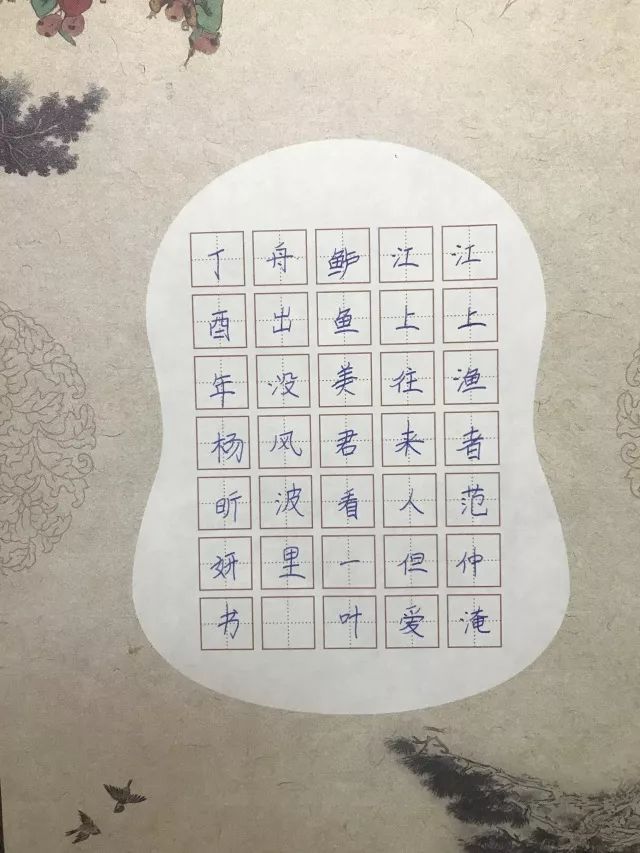 江上渔者范仲淹
江上往来人但爱
鲈鱼美君看一叶
舟出没风波里
丁酉年杨昕妍书